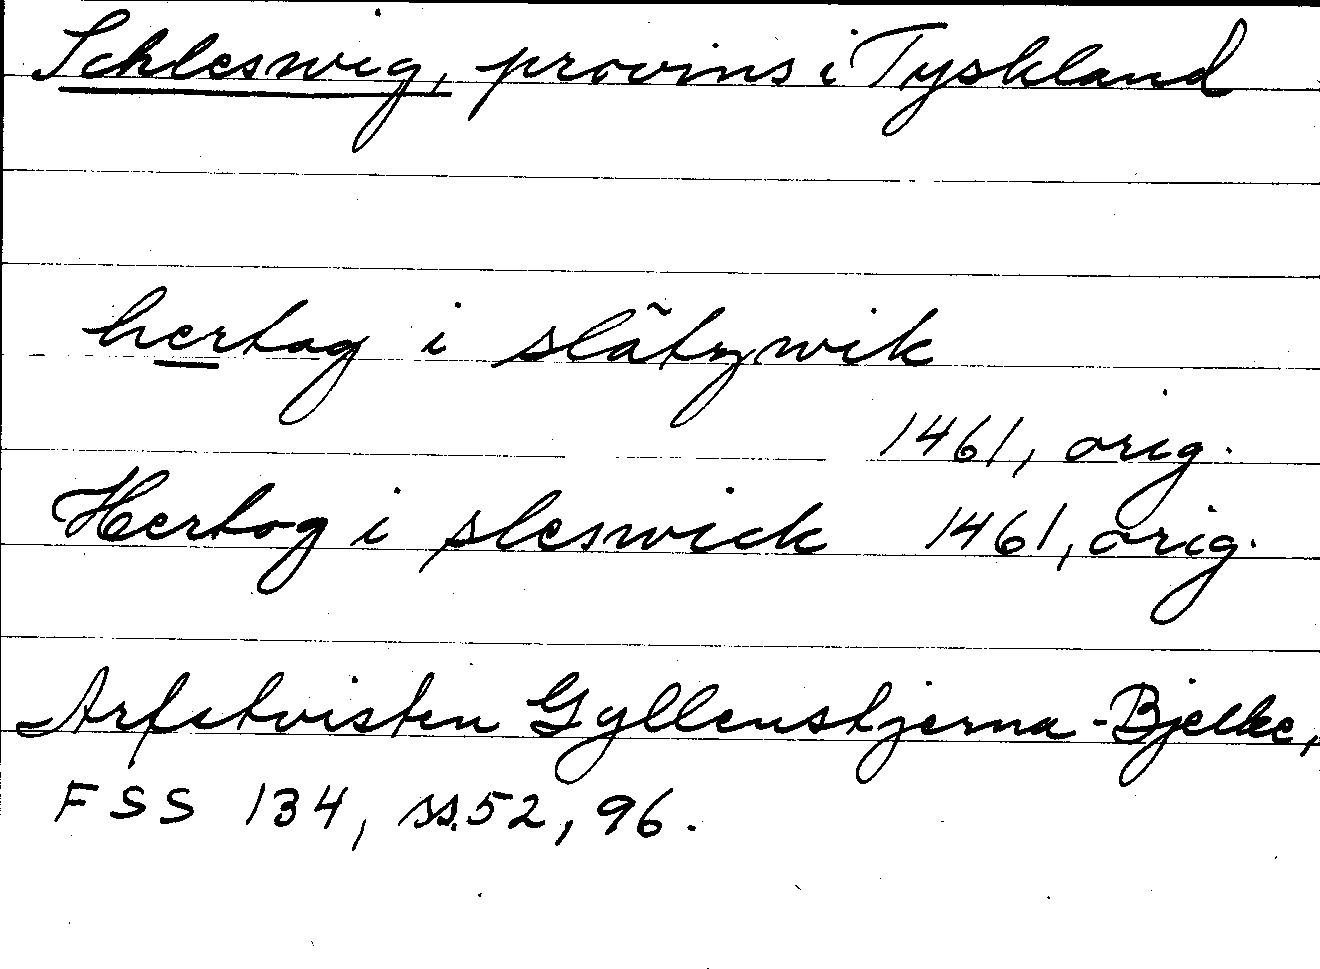 Schleswig, provins i Tyskland
hertog i slãtzwik
1461, orig.
Hertog i sleswick 1461, orig.
Arfstvisten Gyllenstjerna-Bjelke,
FSS 134, ss. 52, 96.